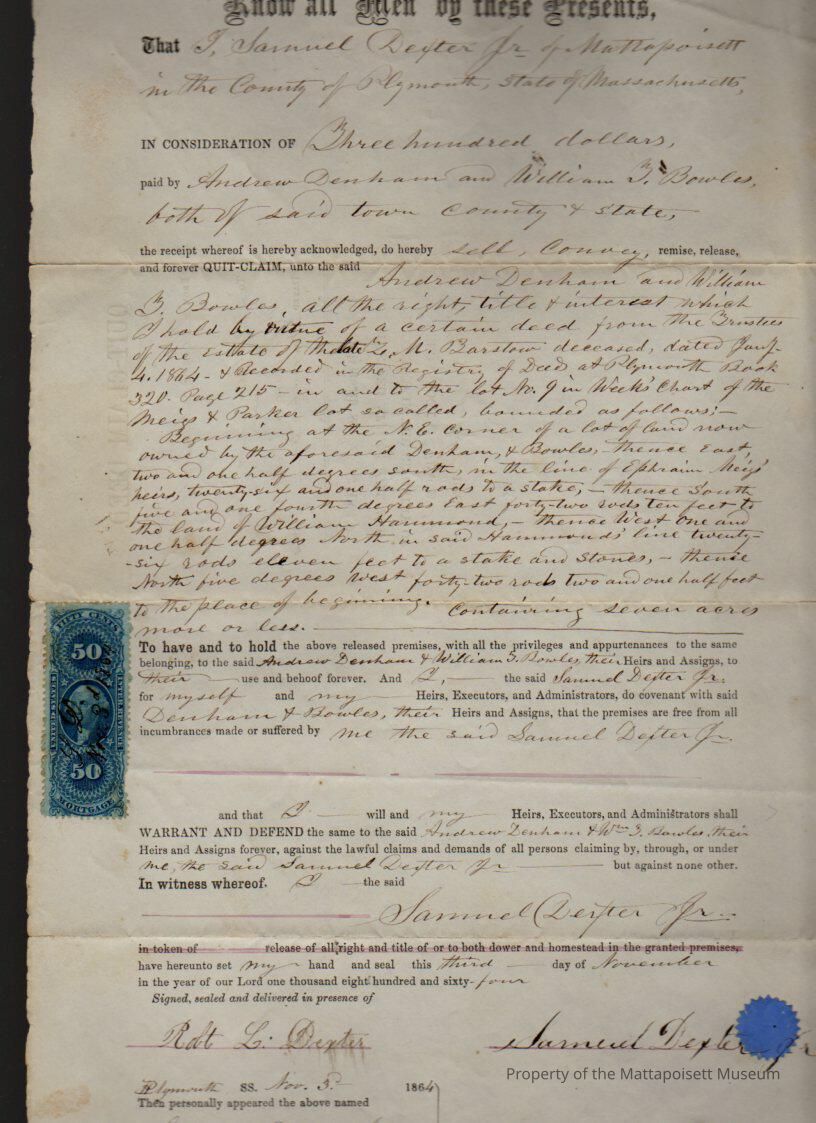 Know all Men by these Presents,
That I, Samuel Dexter Jr of Mattapoisett
in the County of Plymouth, State of Massachusetts,
IN CONSIDERATION OF Three hundred dollars,
paid by Andrew Denham and William T. Bowles,
both of said town County & State,
the receipt whereof is hereby acknowledged, do hereby sell, Convey, remise, release,
and forever QUIT-CLAIM, unto the said
Andrew Denham and William
T. Bowles, all the right, title & interest which
I hold by virtue of a certain deed from the Trustees
of the Estate of the late M. Barstow deceased, dated Jany.
4. 1864 - & Recorded in the Registry of Deed, at Plymouth Book
320. Page 215 - in and to the lot No. 9 in Week's Chart of the
Meigs & Parker lot so called, bounded as follows; -
Beginning at the N.E. corner of a lot of land now
owned by the aforesaid Denham, & Bowles, - thence East,
two and one half degrees south, in the line of Ephraim Meigs'
heirs, twenty-six and one half rods to a stake, - thence South
five and one fourth degrees East forty-two rods ten feet to
the land of William Hammond, - thence West one and
one half degrees North in said Hammonds' line twenty-
-six rods eleven feet to a stake and stones, - thence
North five degrees west forty-two rods two and one half feet
to the place of beginning. Containing seven acres
more or less.
To have and to hold the above released premises, with all the privileges and appurtenances to the same
belonging, to the said Andrew Denham & William T. Bowles, their Heirs and Assigns, to
their use and behoof forever. And I, the said Samuel Dexter Jr.
for myself and my Heirs, Executors, and Administrators, do covenant with said
Denham & Bowles, their Heirs and Assigns, that the premises are free from all
incumbrances made or suffered by me the said Samuel Dexter Jr.
and that I will and my Heirs, Executors, and Administrators shall
WARRANT AND DEFEND the same to the said Andrew Denham & Wm T. Bowles, their
Heirs and Assigns forever, against the lawful claims and demands of all persons claiming by, through, or under
me, the said Samuel Dexter Jr but against none other.
In witness whereof. I the said
Samuel Dexter Jr.
in token of release of all right and title of or to both dower and homestead in the granted premises,
have hereunto set my hand and seal this third day of November
in the year of our Lord one thousand eight hundred and sixty-four
Signed, sealed and delivered in presence of
Robt L. Dexter
Samuel Dexter Jr
Plymouth SS. Nov. 3d 1864
Then personally appeared the above named
FIFTY CENTS
50
UNITED STATES
INTER. REVENUE
S. D.
Nov. 3d 1864
50
MORTGAGE
Property of the Mattapoisett Museum